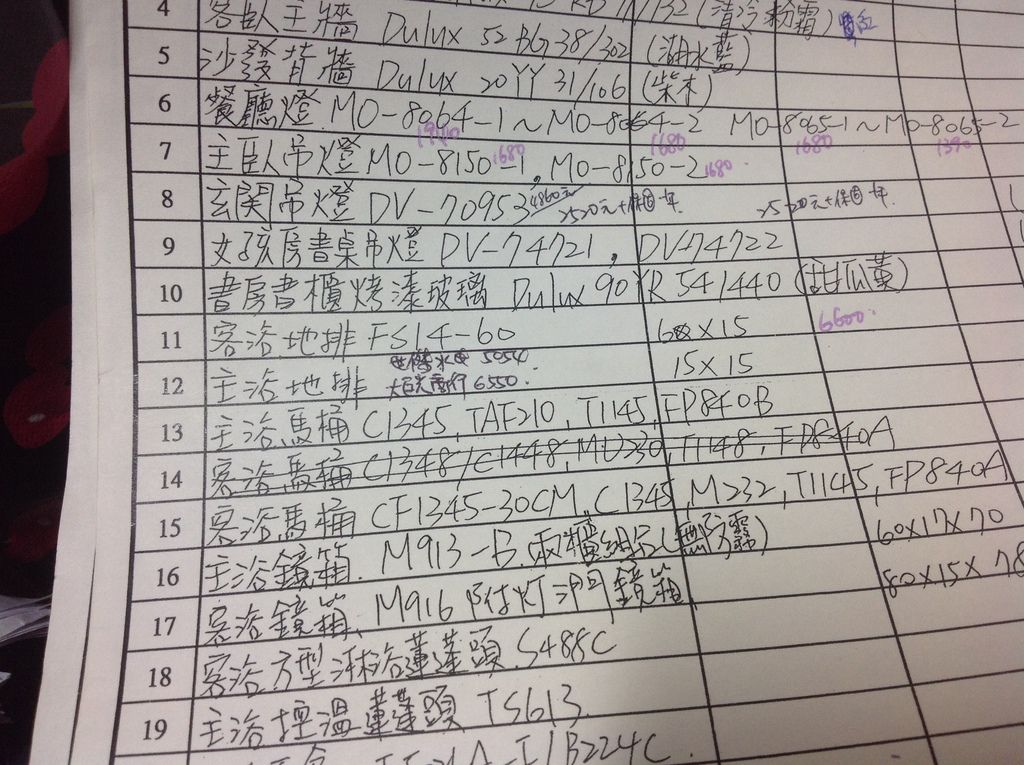 4
客臥主牆 Dulux 52BG 38/302 (湖水藍)
5
沙發背牆 Dulux 20YY 31/106 (柴木)
6
餐廳燈 MO-8064-1~MO-8064-2 MO-8065-1~MO-8065-2
1680 1390
7
主臥吊燈 MO-8150-1, MO-8150-2
1680 1680 1680
8
玄關吊燈 DV-70953 4860元 2520元+保固一年 2520元+保固一年
9
女孩房書桌吊燈 DV-74721, DV-74722
10
書房書櫃烤漆玻璃 Dulux 90YR 54/440 (甜瓜黃)
11
客浴地排 FS14-60 60X15 6600
5054
12
主浴地排 6550 15X15
13
主浴馬桶 C1345, TAF210, T1145, FP840B
14
客浴馬桶 C1348/C1448, MU230, T1148, FP840A
15
客浴馬桶 CF1345-30CM, C1345, M232, T1145, FP840A
16
主浴鏡箱 M913-B. (無防霧) 60X17X70
17
客浴鏡箱 M916 附灯 鏡箱 80X15X78
18
客浴方型淋浴蓮蓬頭 S488C
19
主浴控溫蓮蓬頭 TS613
B224C